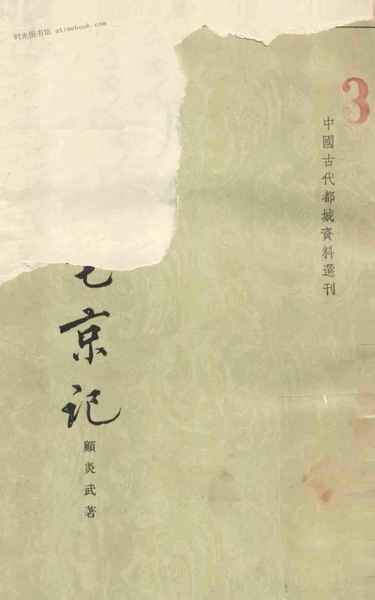 时光图书馆 atimebook.com
3
中國古代都城資料選刊
京记
顧炎武著